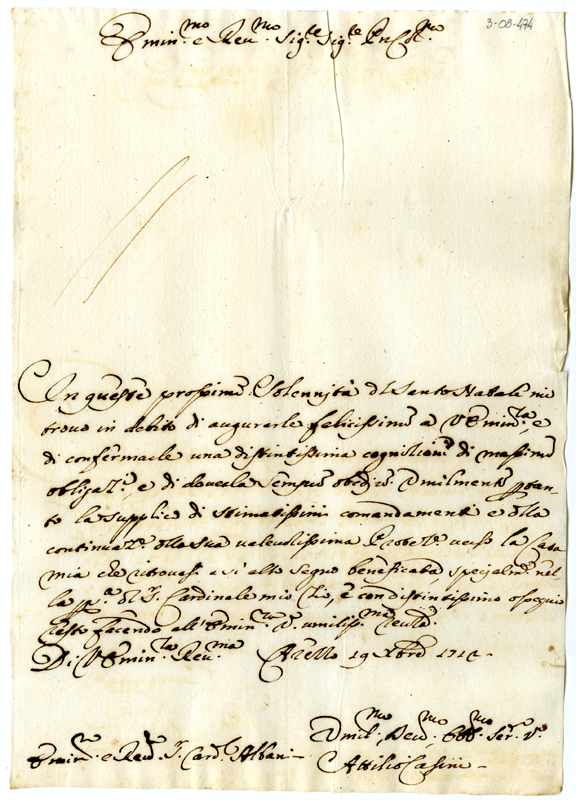 3-08-474
Emin.mo e Reu.mo Sig.re Sig.re Pn Col.mo
In queste prossime Solennità del Santo Natale mi
trouo in debito di augurarle felicissime a V Emin.za, e
di confermarle una distintissima cognitione di massime
obligaz.ni, e di douerla sempre obedire. Umilmente pertan-
to la supplico di stimatissimi comandamenti e della
continuaz.ne della sua valeuolissima Protez.ne verso la Casa
mia che ritrouasi a si alto segno beneficata, specialm.te nel
la p.a del S. Cardinale mio Zio, e con distintissimo ossequio
resto facendo all'Emin.za V. umiliss.ma reuer.
Di V Emin.za Reu.ma Arezzo 19 Xbre 1712
Umil.mo Deu.mo Obb.mo Ser.re V.o
Emin.mo e Reu.mo S. Card.le Albani Attilio Casini